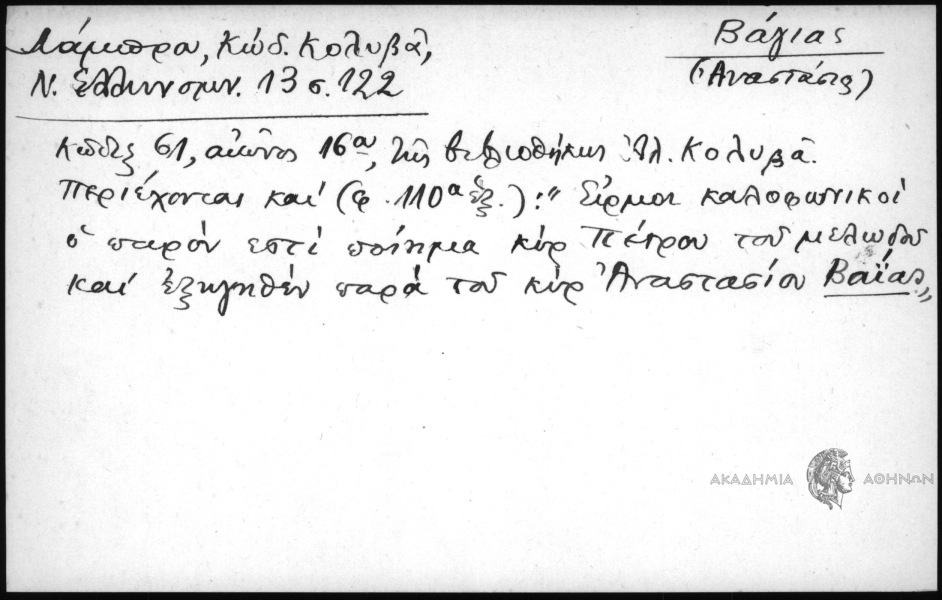 Λάμπρου, Κώδ. Κολυβᾶ,
Ν. Ἑλληνομν. 13 σ. 122
Βάγιας
(Ἀναστάσις)
Κῶδιξ 61, αἰῶνος 16ου, τῆς βιβλιοθήκης Ἀλ. Κολυβᾶ.
Περιέχονται καί (φ. 110α ἑξ.): "Εἱρμοι καλοφωνικοί
ὁ παρόν εστί ποίημα κὺρ Πέτρου τοῦ μελωδοῦ
καί ἐξηγηθέν παρά τοῦ κὺρ Ἀναστασίου Βαΐας"
ΑΚΑΔΗΜΙΑ ΑΘΗΝΩΝ